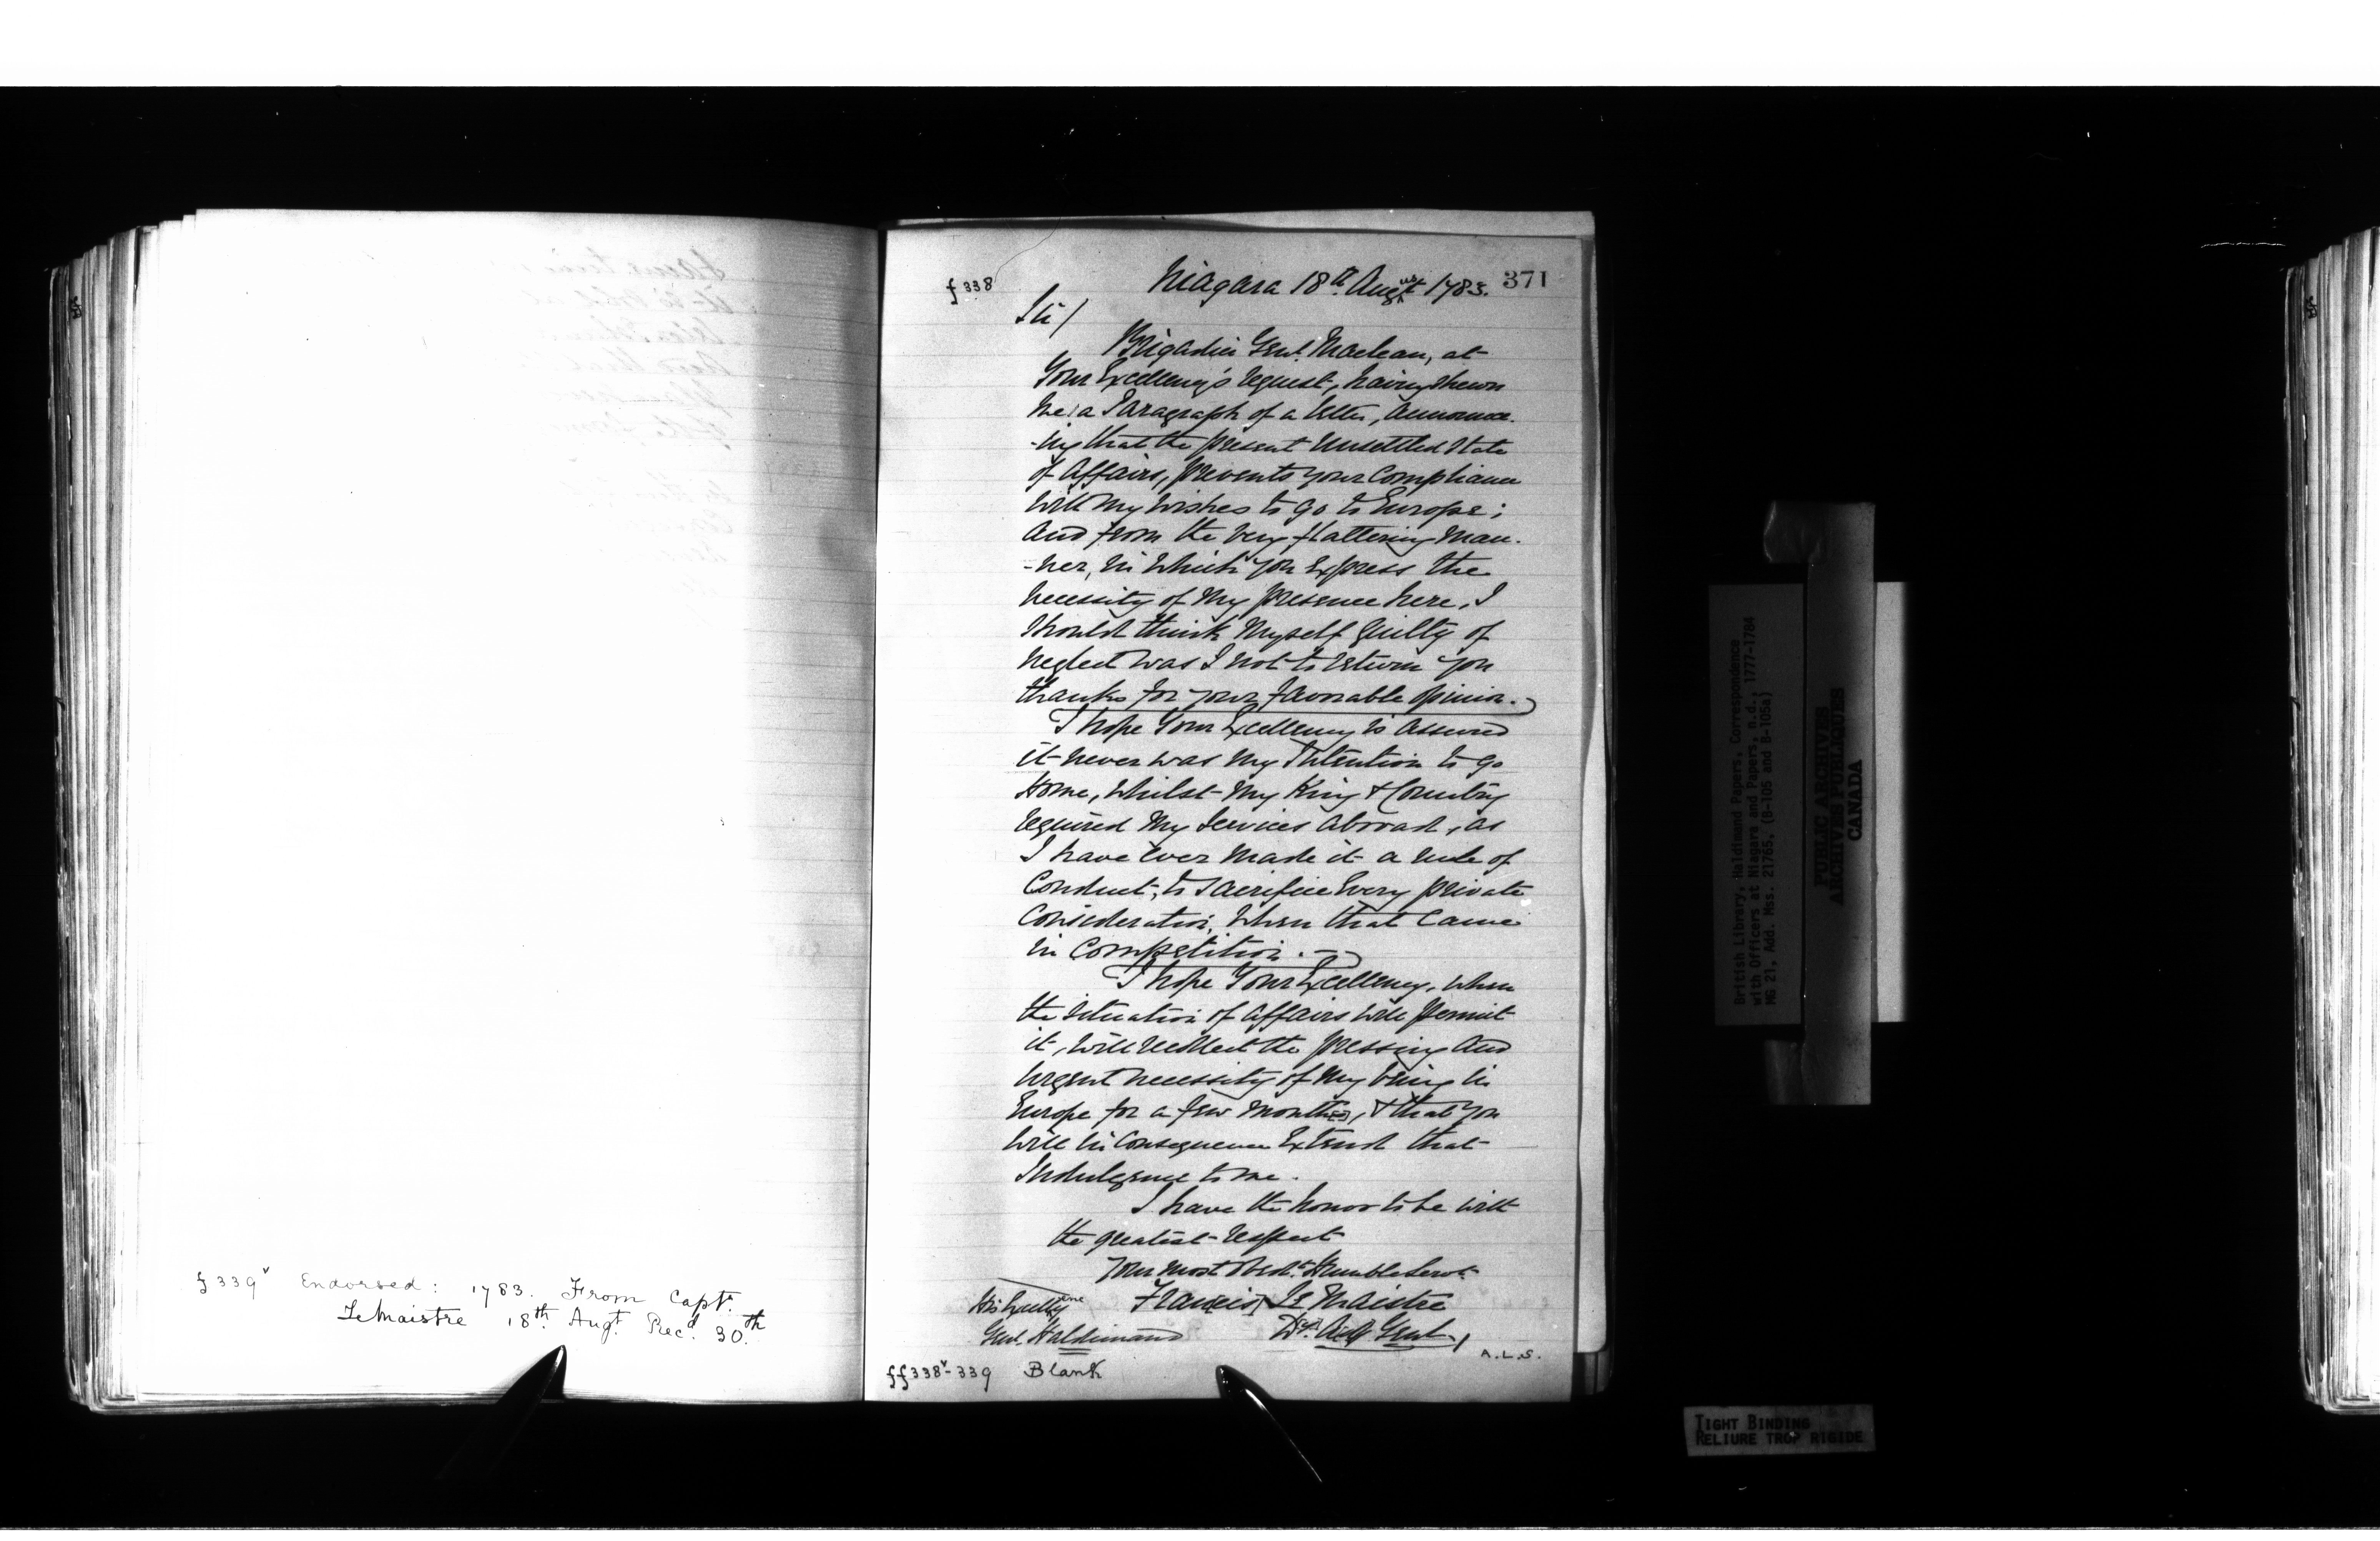 f 339v Endorsed: 1783. From Capt.
LeMaistre 18th Augt. Recd. 30th
f 338
Niagara 18th August 1783.
371
Sir/
Brigadier Genl. Maclean, at
Your Excellency's request, having shewn
me a Paragraph of a letter, announc-
-ing that the present unsettled State
of Affairs, prevents your Compliance
with my wishes to go to Europe;
and from the very flattering man-
-ner, in which you Express the
necessity of my presence here, I
should think myself guilty of
neglect was I not to return you
thanks for your favorable opinion.
I hope Your Excellency is assured
it never was my Intention to go
Home, whilst my King & Country
required my Services abroad, as
I have ever made it a rule of
Conduct, to Sacrifice Every private
Consideration, when that came
in Competition. —
I hope Your Excellency, when
the situation of affairs will permit
it, will recollect the pressing and
urgent necessity of my being in
Europe for a few months, & that you
will in Consequence Extend that
Indulgence to me.
I have the honor to be with
the greatest respect
Your most Obedt. Humble Servt.
Francis Le Maistre
His Excellency
Genl. Haldimand
Dy. Adj Genl.
A.L.S.
ff 338v-339 Blank
British Library, Haldimand Papers, Correspondence
with Officers at Niagara and Papers, n.d., 1777-1784
MG 21, Add. Mss. 21765. (B-105 and B-105a)
PUBLIC ARCHIVES
ARCHIVES PUBLIQUES
CANADA
TIGHT BINDING
RELIURE TROP RIGIDE